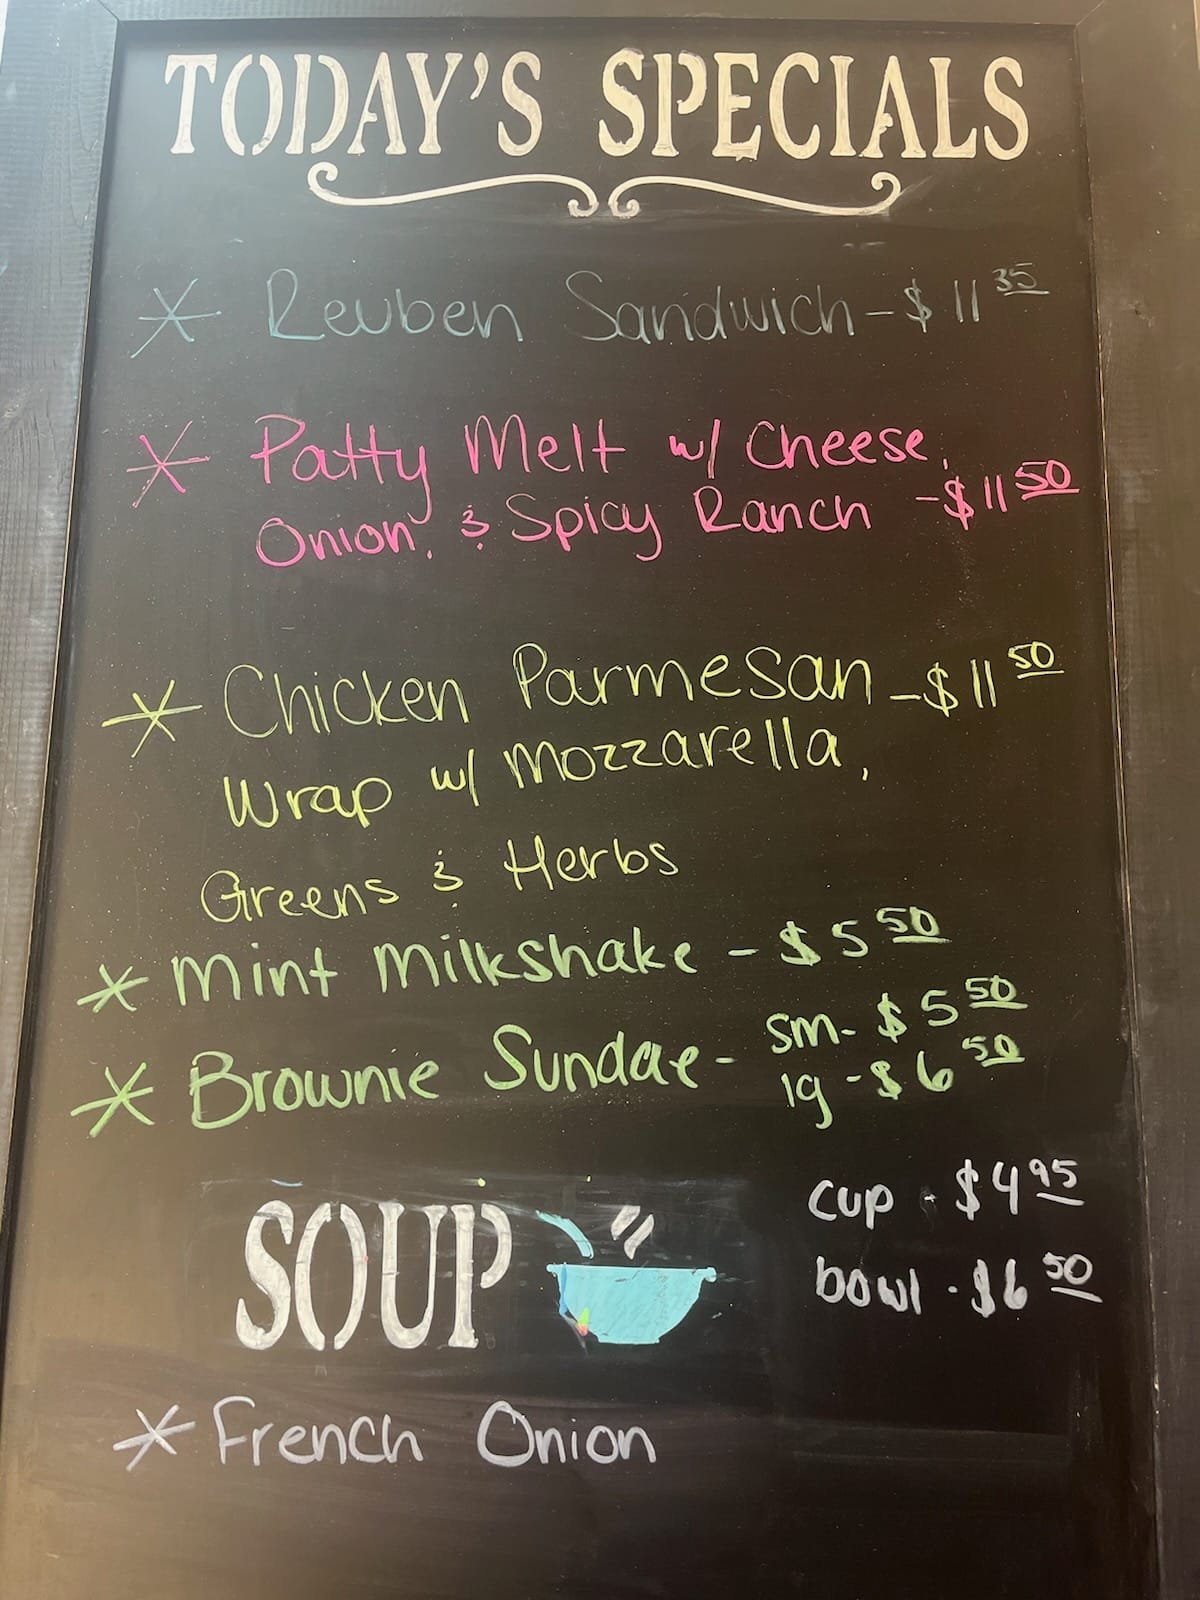 TODAY'S SPECIALS
* Reuben Sandwich - $11 35
* Patty Melt w/ Cheese,
Onion, & Spicy Ranch - $11 50
* Chicken Parmesan - $11 50
Wrap w/ Mozzarella,
Greens & Herbs
* Mint Milkshake - $5 50
* Brownie Sundae - sm - $5 50
lg - $6 50
cup - $4 95
SOUP
bowl - $6 50
* French Onion